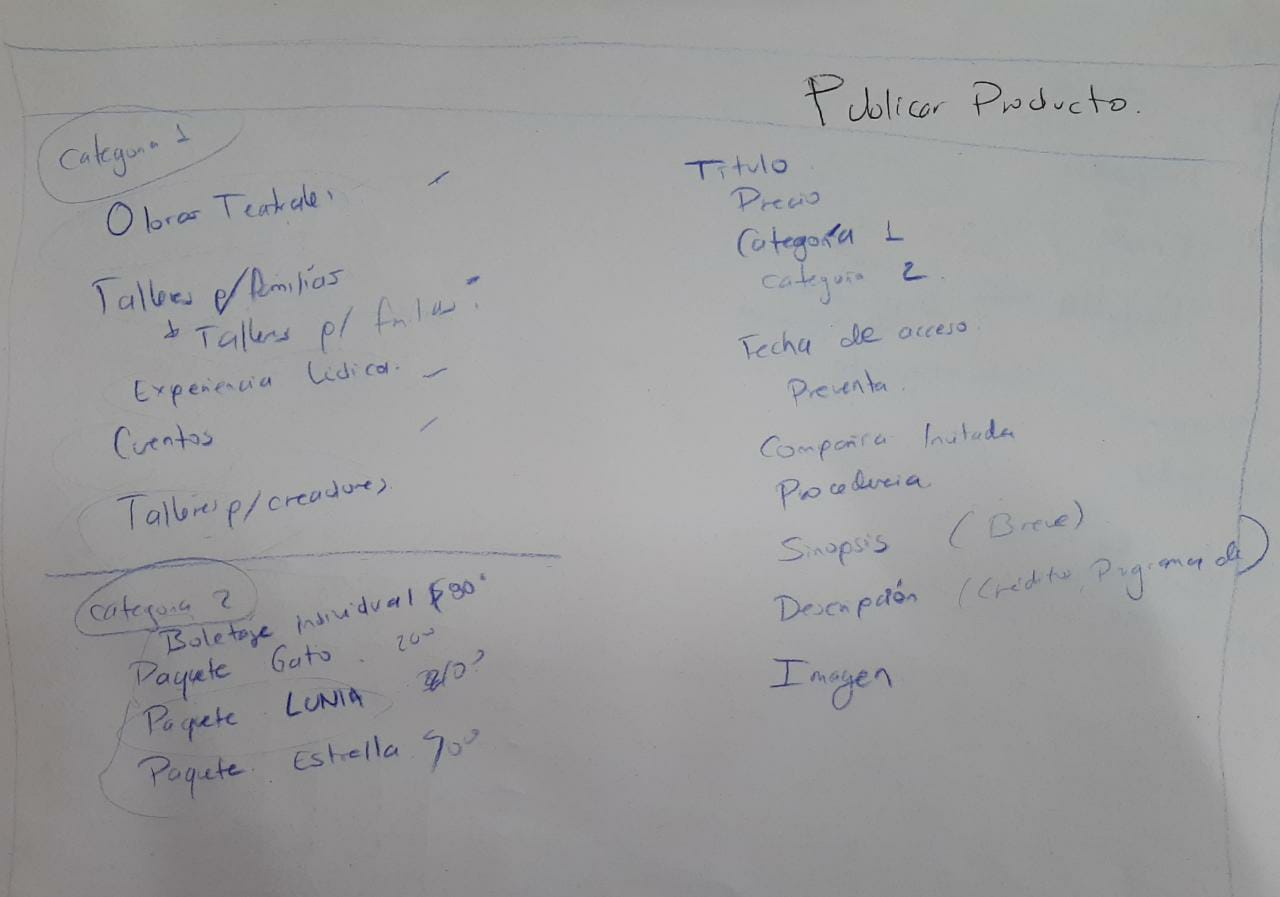 Publicar Producto.
Categoria 1
Obras Teatrales
Talleres p/familias
Talleres p/
Experiencia Lúdica.
Cuentos
Talleres p/creadores.
Categoria 2
Boletaje individual $90
Paquete Gato. 200
Paquete LUNIA
Paquete. Estrella
Título
Precio
Categoría 1
categoría 2.
Fecha de acceso.
Preventa.
Compañia Invitada
Procedencia
Sinopsis (Breve)
Descripción (Crédito, Programa de
Imagen